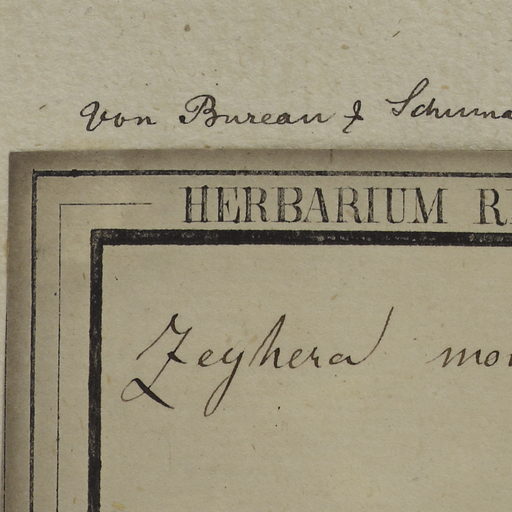 von Bureau & Schuma
HERBARIUM R
Zeyhera mon